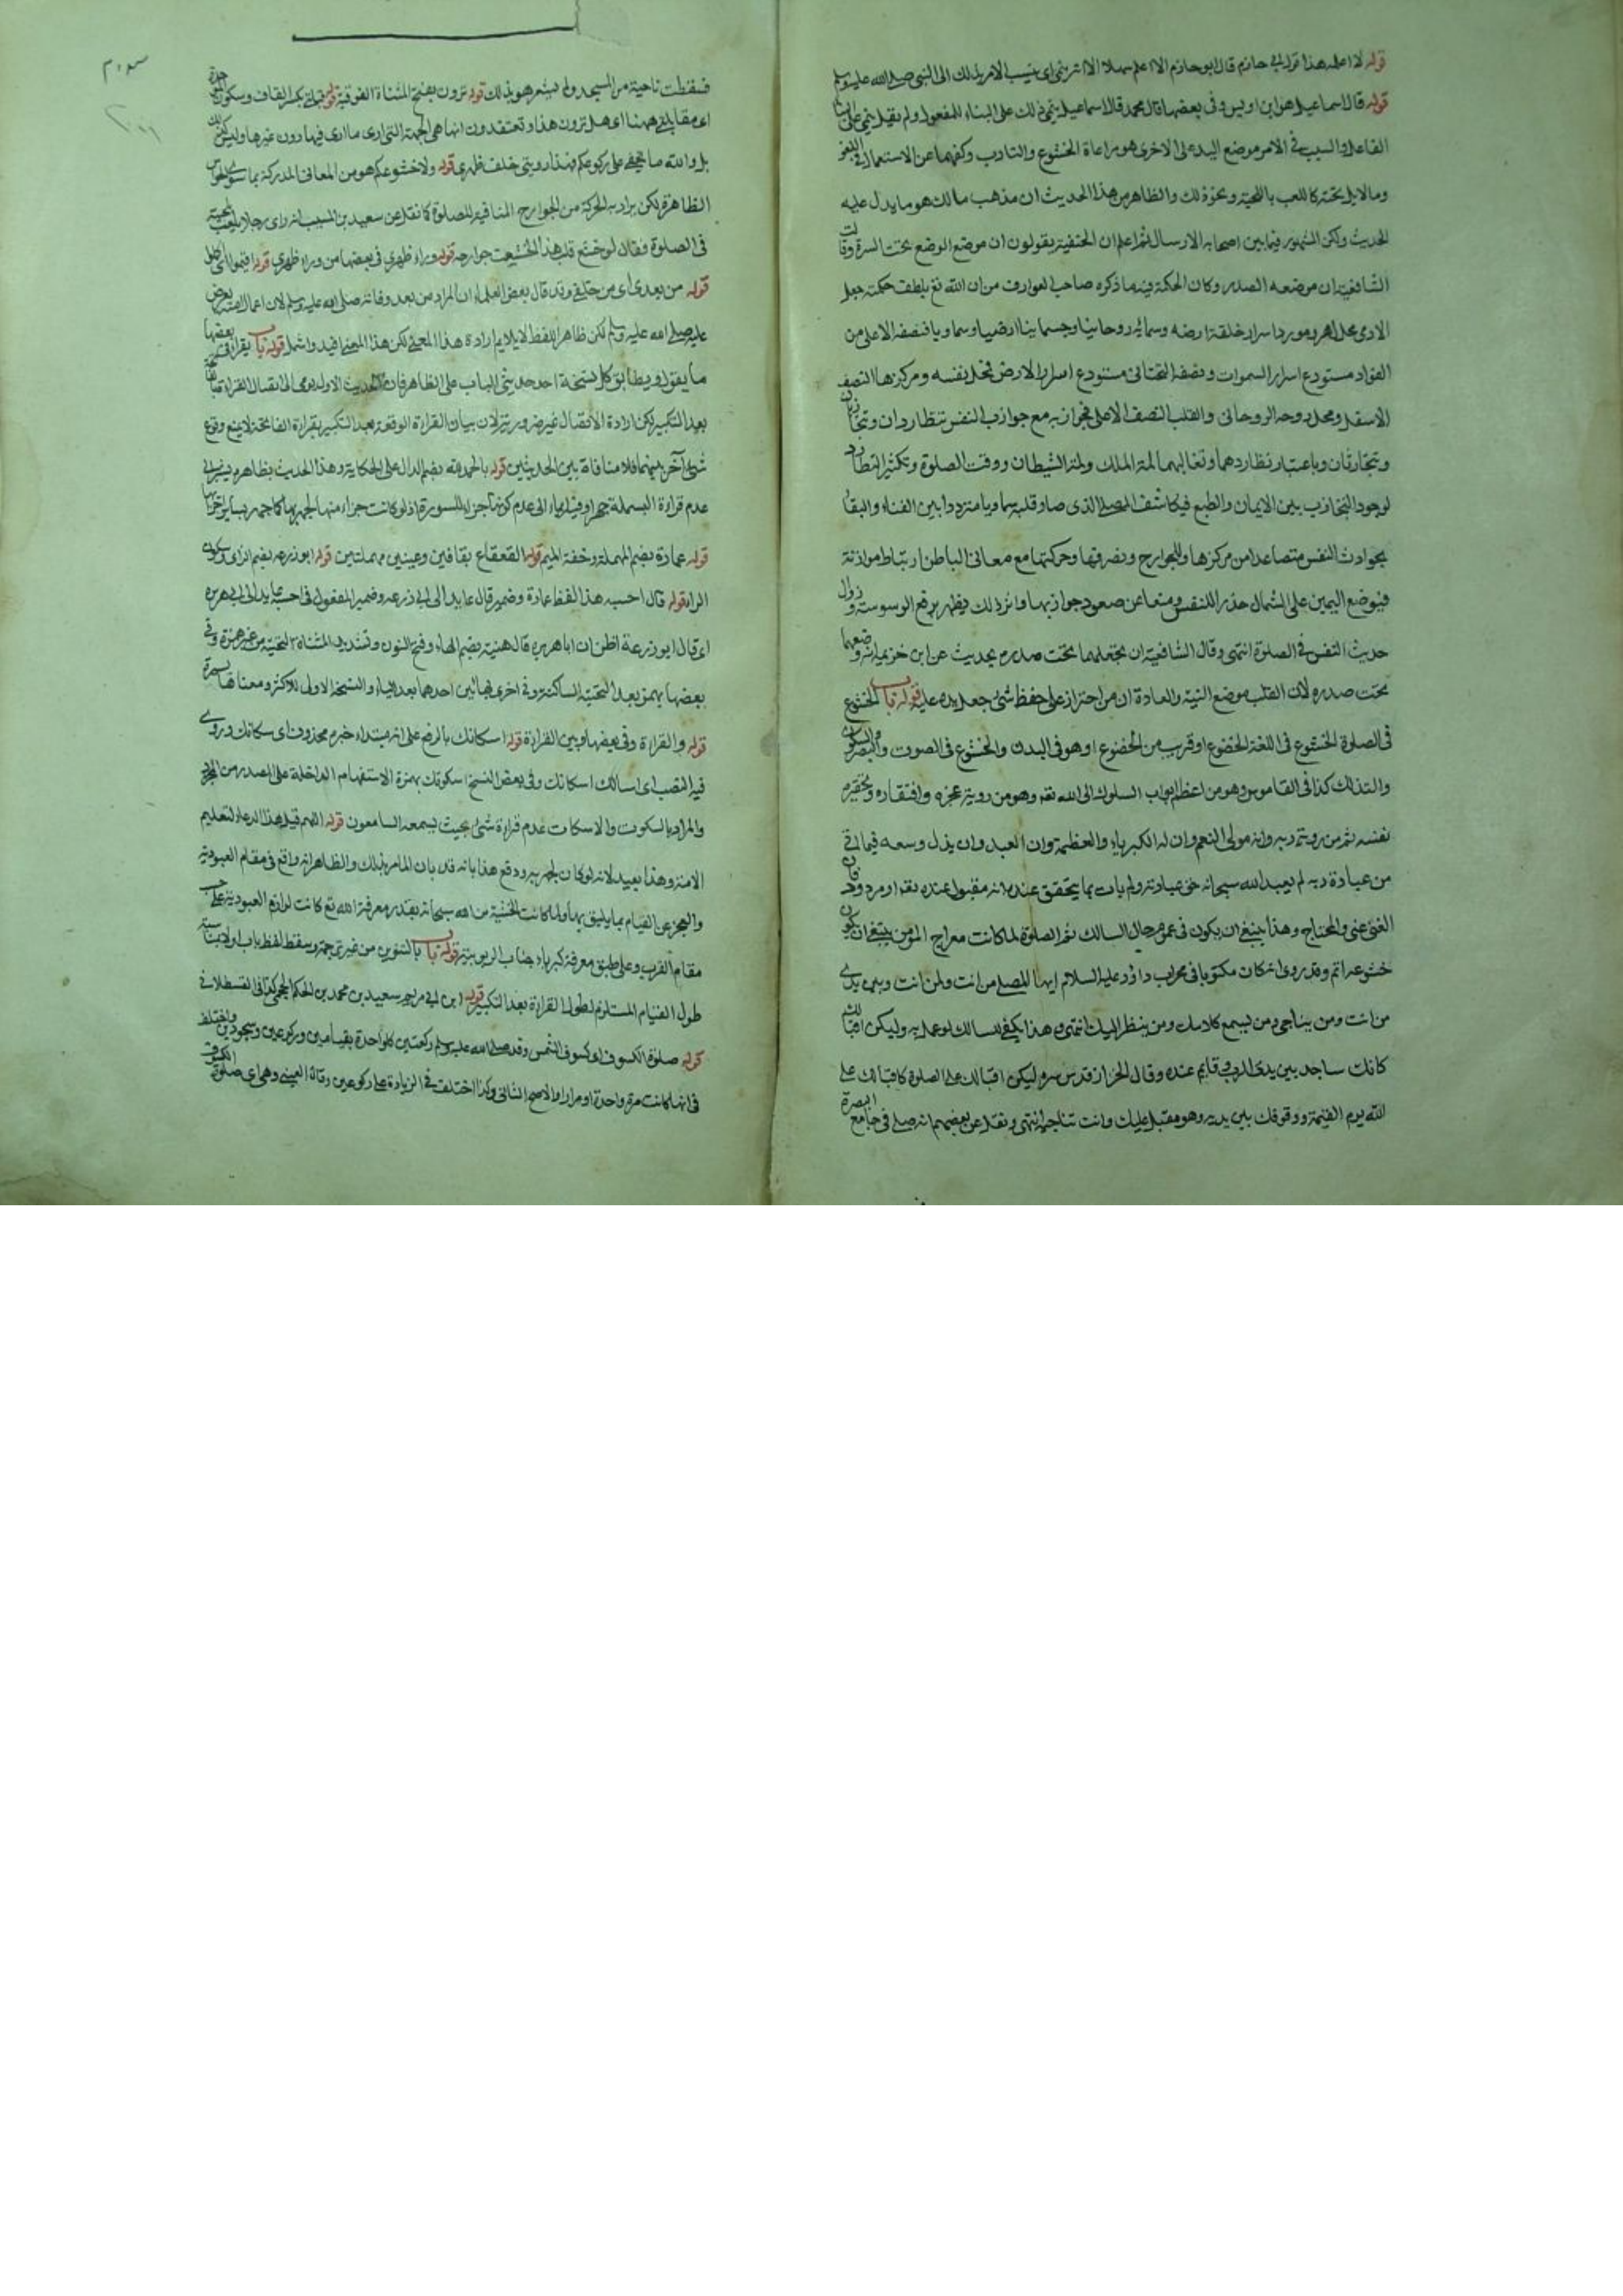 قوله لا اعلمه هذا قول ابي حازم قال ابو حازم لا اعلم سهلا الا انه ينمي اى ينسب الامر بذلك الى النبي صلى الله عليه وسلم
قوله قال اسماعيل هو ابن اويس وفى بعضها قال محمد قال اسماعيل ينمي ذلك على البناء للمفعول ولم يقل ينمي على البناء
الفاعل والسبب فى الامر موضع اليد على الاخرى هو مراعاة الخشوع والتادب وكفهما عن الاستعمال فى اللغو
ومالا يل يخته كاللعب باللحية ونحو ذلك والظاهر من هذا الحديث ان مذهب مالك هو ما يدل عليه
الحديث ولكن المشهور فيما بين اصحابه الارسال ثم اعلم ان الحنفية يقولون ان موضع الوضع تحت السرة وقالت
الشافعية ان موضعه الصدر وكان الحكمة فيه ما ذكره صاحب العوارف من ان الله تع بلطف حكمته جعل
الادمى محل امره ومورد اسرار خلقة ارضه وسمائه روحانيا وجسمانيا ارضيا وسماويا فنصفه الاعلى من
الفؤاد مستودع اسرار السموات ونصفه التحتانى مستودع اسرار الارض فمحل نفسه ومركزها النصف
الاسفل ومحل روحه الروحانى والقلب النصف الاعلى فجواذبه مع جواذب النفس تتطاردان وتتجاذبان
وتتحاربان وباعتبار تطاردهما وتغالبهما لمة الملك ولمة الشيطان ووقت الصلوة وتكثر التطارد
لوجود التجاذب بين الايمان والطبع فيكاشف المصلى الذى صار قلبه سماويا مترددا بين الفناء والبقاء
بجوادث النفس متصاعدا من مركزها وللجوارح وتصرفها وحركتها مع معانى الباطن ارتباط موازنة
فبوضع اليمين على الشمال حذر اللنفس ومنعا عن صعود جواذبها واثر ذلك يظهر برفع الوسوسة وزوال
حديث النفس فى الصلوة انتهى وقال الشافعية ان يجعلهما تحت صدره بحديث عن ابن خزيمة انه وضعهما
تحت صدره لان القلب موضع النية والعادة ان من احتراز على حفظ شئ جعل يده عليه قوله باب الخشوع
فى الصلوة الخشوع فى اللغة الخضوع او قريب من الخضوع او هو فى البدن والخشوع فى الصوت والبصر والسكون
والتذلل كذا فى القاموس وهو من اعظم ابواب السلوك الى الله تع وهو من روية عجزه وافتقاره وتحقيره
نفسه ثم من روية ربه وانه مولى النعم وان له الكبرياء والعظمة وان العبد وان يذل وسعه فيما لى
من عبادة ربه لم يعبد الله سبحانه حق عبادته ولم يات بما يتحقق عنده انه مقبول عنده تع او مردود فان
الغنى غنى والمحتاج وهذا ينبغى ان يكون فى عموم حال السالك نعم الصلوة لما كانت معراج المؤمن ينبغى ان يكون
خشوعه اتم وقد روى انه كان مكتوبا فى محراب داؤد عليه السلام ايها المصلى من انت ولمن انت وبين يدى
من انت ومن يناجى ومن يسمع كلامك ومن ينظر اليك انتهى وهذا يكفى للسالك لو عمل به وليكن اقبالك
كانك ساجد بين يدى الرب وقايم عنده وقال الخراز قدس سره ليكن اقبالك على الصلوة كاقبالك على
الله يوم القيمة ووقوفك بين يديه وهو مقبل عليك وانت تناجيه انتهى ونقل عن بعضهم انه صلى فى جامع البصرة
فسقطت ناحية من المسجد ولم يشعر هو بذلك قوله ترون بفتح المثناة الفوقية قوله قبلتى بكسر القاف وسكون
اى مقابلتى ههنا اى هل ترون هذا وتعتقدون انها هى الجهة التى ارى ما ارى فيها دون غيرها وليس كذلك
بل والله ما يخفى على ركوعكم فهذا رويتى خلف ظهرى قوله ولا خشوعكم هو من المعانى المدركة بما سوى الحواس
الظاهرة لكن يراد به الحركة من الجوارح المنافية للصلوة كما نقل عن سعيد بن المسيب انه راى رجلا يلعب بلحيته
فى الصلوة فقال لو خشع قلب هذا لخشعت جوارحه قوله وراء ظهرى فى بعضها من وراء ظهرى قوله اقيموا اى اكملوا
قوله من بعدى اى من خلفى وقد قال بعض العلماء ان المراد من بعد وفاته صلى الله عليه وسلم لان اعمال امته يعرض
عليه صلى الله عليه وسلم لكن ظاهر اللفظ لا يلايم ارادة هذا المعنى لكن هذا المعنى افيد واشمل قوله باب يقرأ وفى بعضها
ما يقول ويطابق كل نسخة احد حديثى الباب على الظاهر فان الحديث الاول يومى الى اتصال القراءة
بعد التكبير لكن ارادة الاتصال غير ضرورية لان بيان القراءة الوقعة بعد التكبير بقراءة الفاتحة لا يمنع وقوع
شئ آخر بينهما فلا منافاة بين الحديثين قوله بالحمد لله بضم الدال على الحكاية وهذا الحديث بظاهره يشير الى
عدم قراءة البسملة جهرا وفيه ايماء الى عدم كونها جزء للسورة اذ لو كانت جزاء منها لجهر بها كما جهر بساير اجزائها
قوله عمارة بضم المهملة وخفة الميم قوله القعقاع بقافين وعينين مهملتين قوله ابو زرعه بضم الزاى وسكون
الراء قوله قال احسبه هذا لفظ عمارة وضمير قال عايد الى ابى زرعه وضمير المفعول فى احسبه عايد الى ابى هريرة
اى قال ابو زرعة اظن ان ابا هريرة قال هنية بضم الهاء وفتح النون وتشديد المثناة التحتية من غير همزة وفى
بعضها بهمز بعد التحتية الساكنة وفى اخرى بهائين احدهما بعد الياء والنسخة الاولى للاكثر ومعناها يسيرة
قوله والقراءة وفى بعضها وبين القراءة قوله اسكاتك بالرفع على انه مبتداء خبره محذوف اى سكاتك وروى
فيه النصب اى اسالك اسكاتك وفى بعض النسخ اسكوتك بهمزة الاستفهام الداخلة على المصدر من المجرد
والمراد بالسكوت والاسكات عدم قراءة شئ بحيث يسمعه السامعون قوله اللهم قيل هذا الدعاء لتعليم
الامة وهذا بعيد لانه لو كان لجهر به ودفع هذا بانه قد بان المامر بذلك والظاهر انه واقع فى مقام العبودية
والعجز عن القيام بما يليق بها ولما كانت الخشية من الله سبحانه بقدر معرفة الله تع كانت لوازم العبودية على حسب
مقام القرب وعلى طبق معرفة كبرياء جناب الربوبية قوله باب بالتنوين من غير ترجمة وسقط لفظ باب
طول القيام المستلزم لطول القراءة بعد التكبير قوله ابن ابى مريم سعيد بن محمد بن الحكم الجمحى كذا فى القسطلانى
قوله صلوة الكسوف اى كسوف الشمس وقد صلى الله عليه وسلم ركعتين كل واحدة بقيامين وركوعين وسجودين واختلف
فى انها كانت مرة واحدة او مرارا والاصح الثانى وكذا اختلف فى الزيادة على ركوعين وقال العينى وهى اى صلوة الكسوف